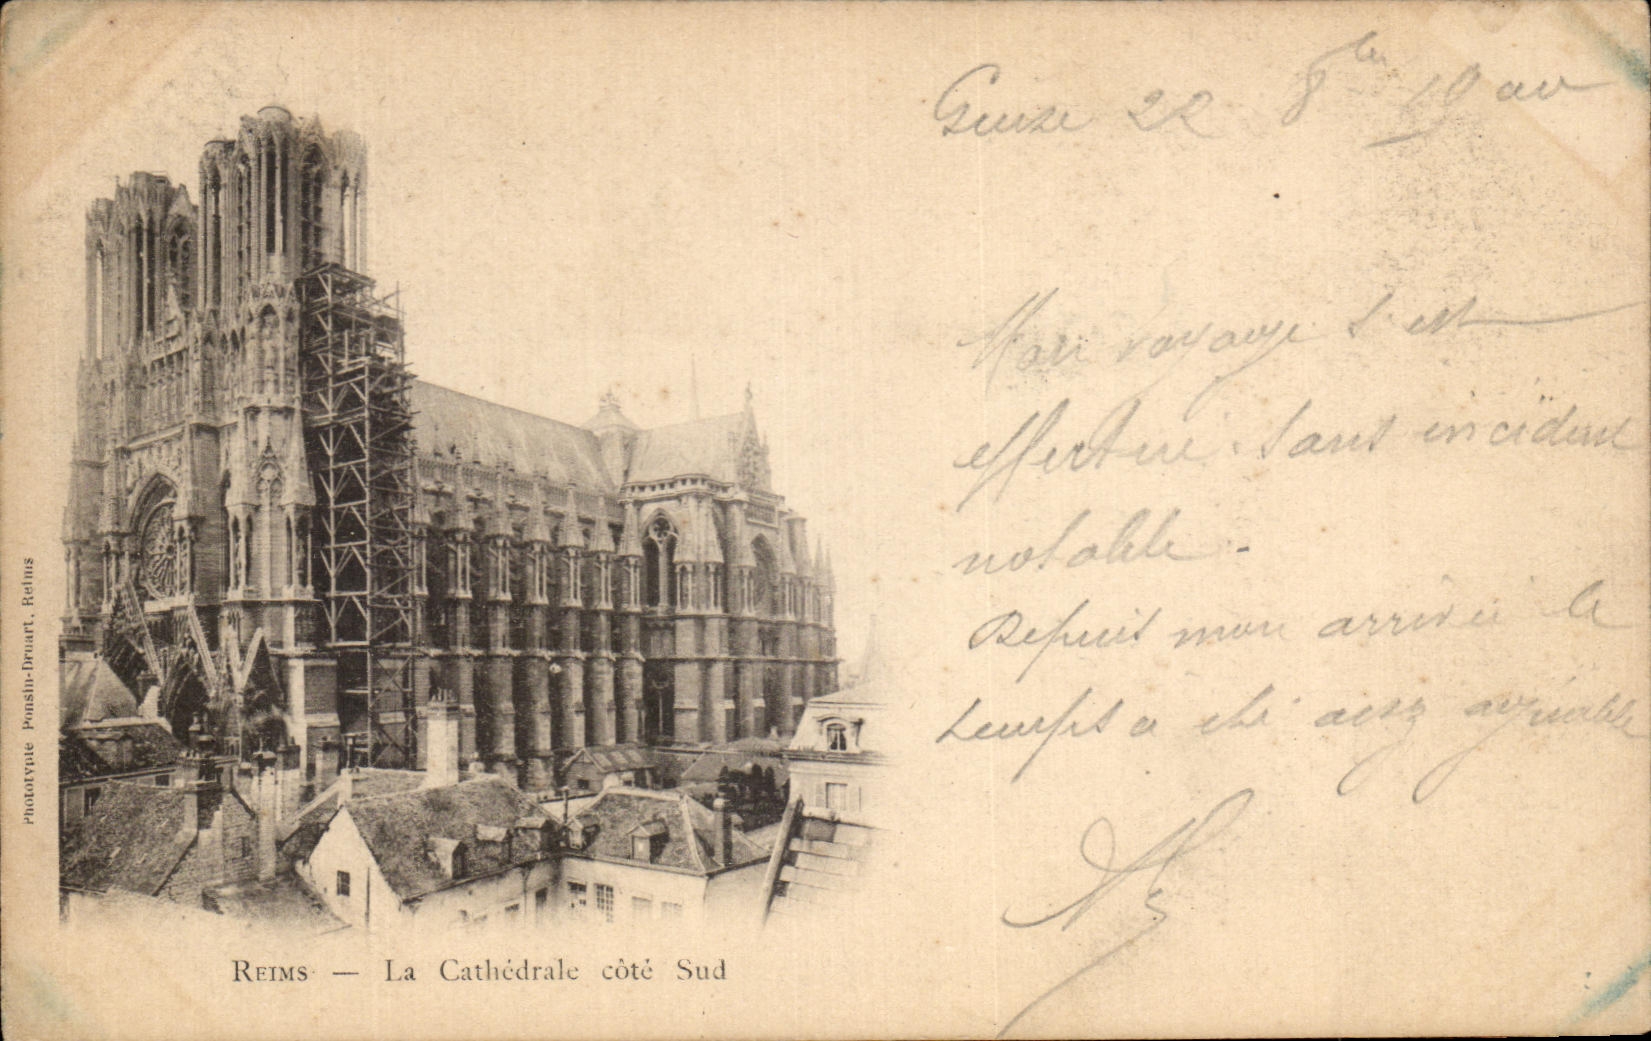 22 8bre 19
Mon voyage s'est
effectué sans incident
notable.
Depuis mon arrivée le
temps a été assez agréable
Phototypie Ponsin-Druart, Reims
REIMS — La Cathédrale côté Sud